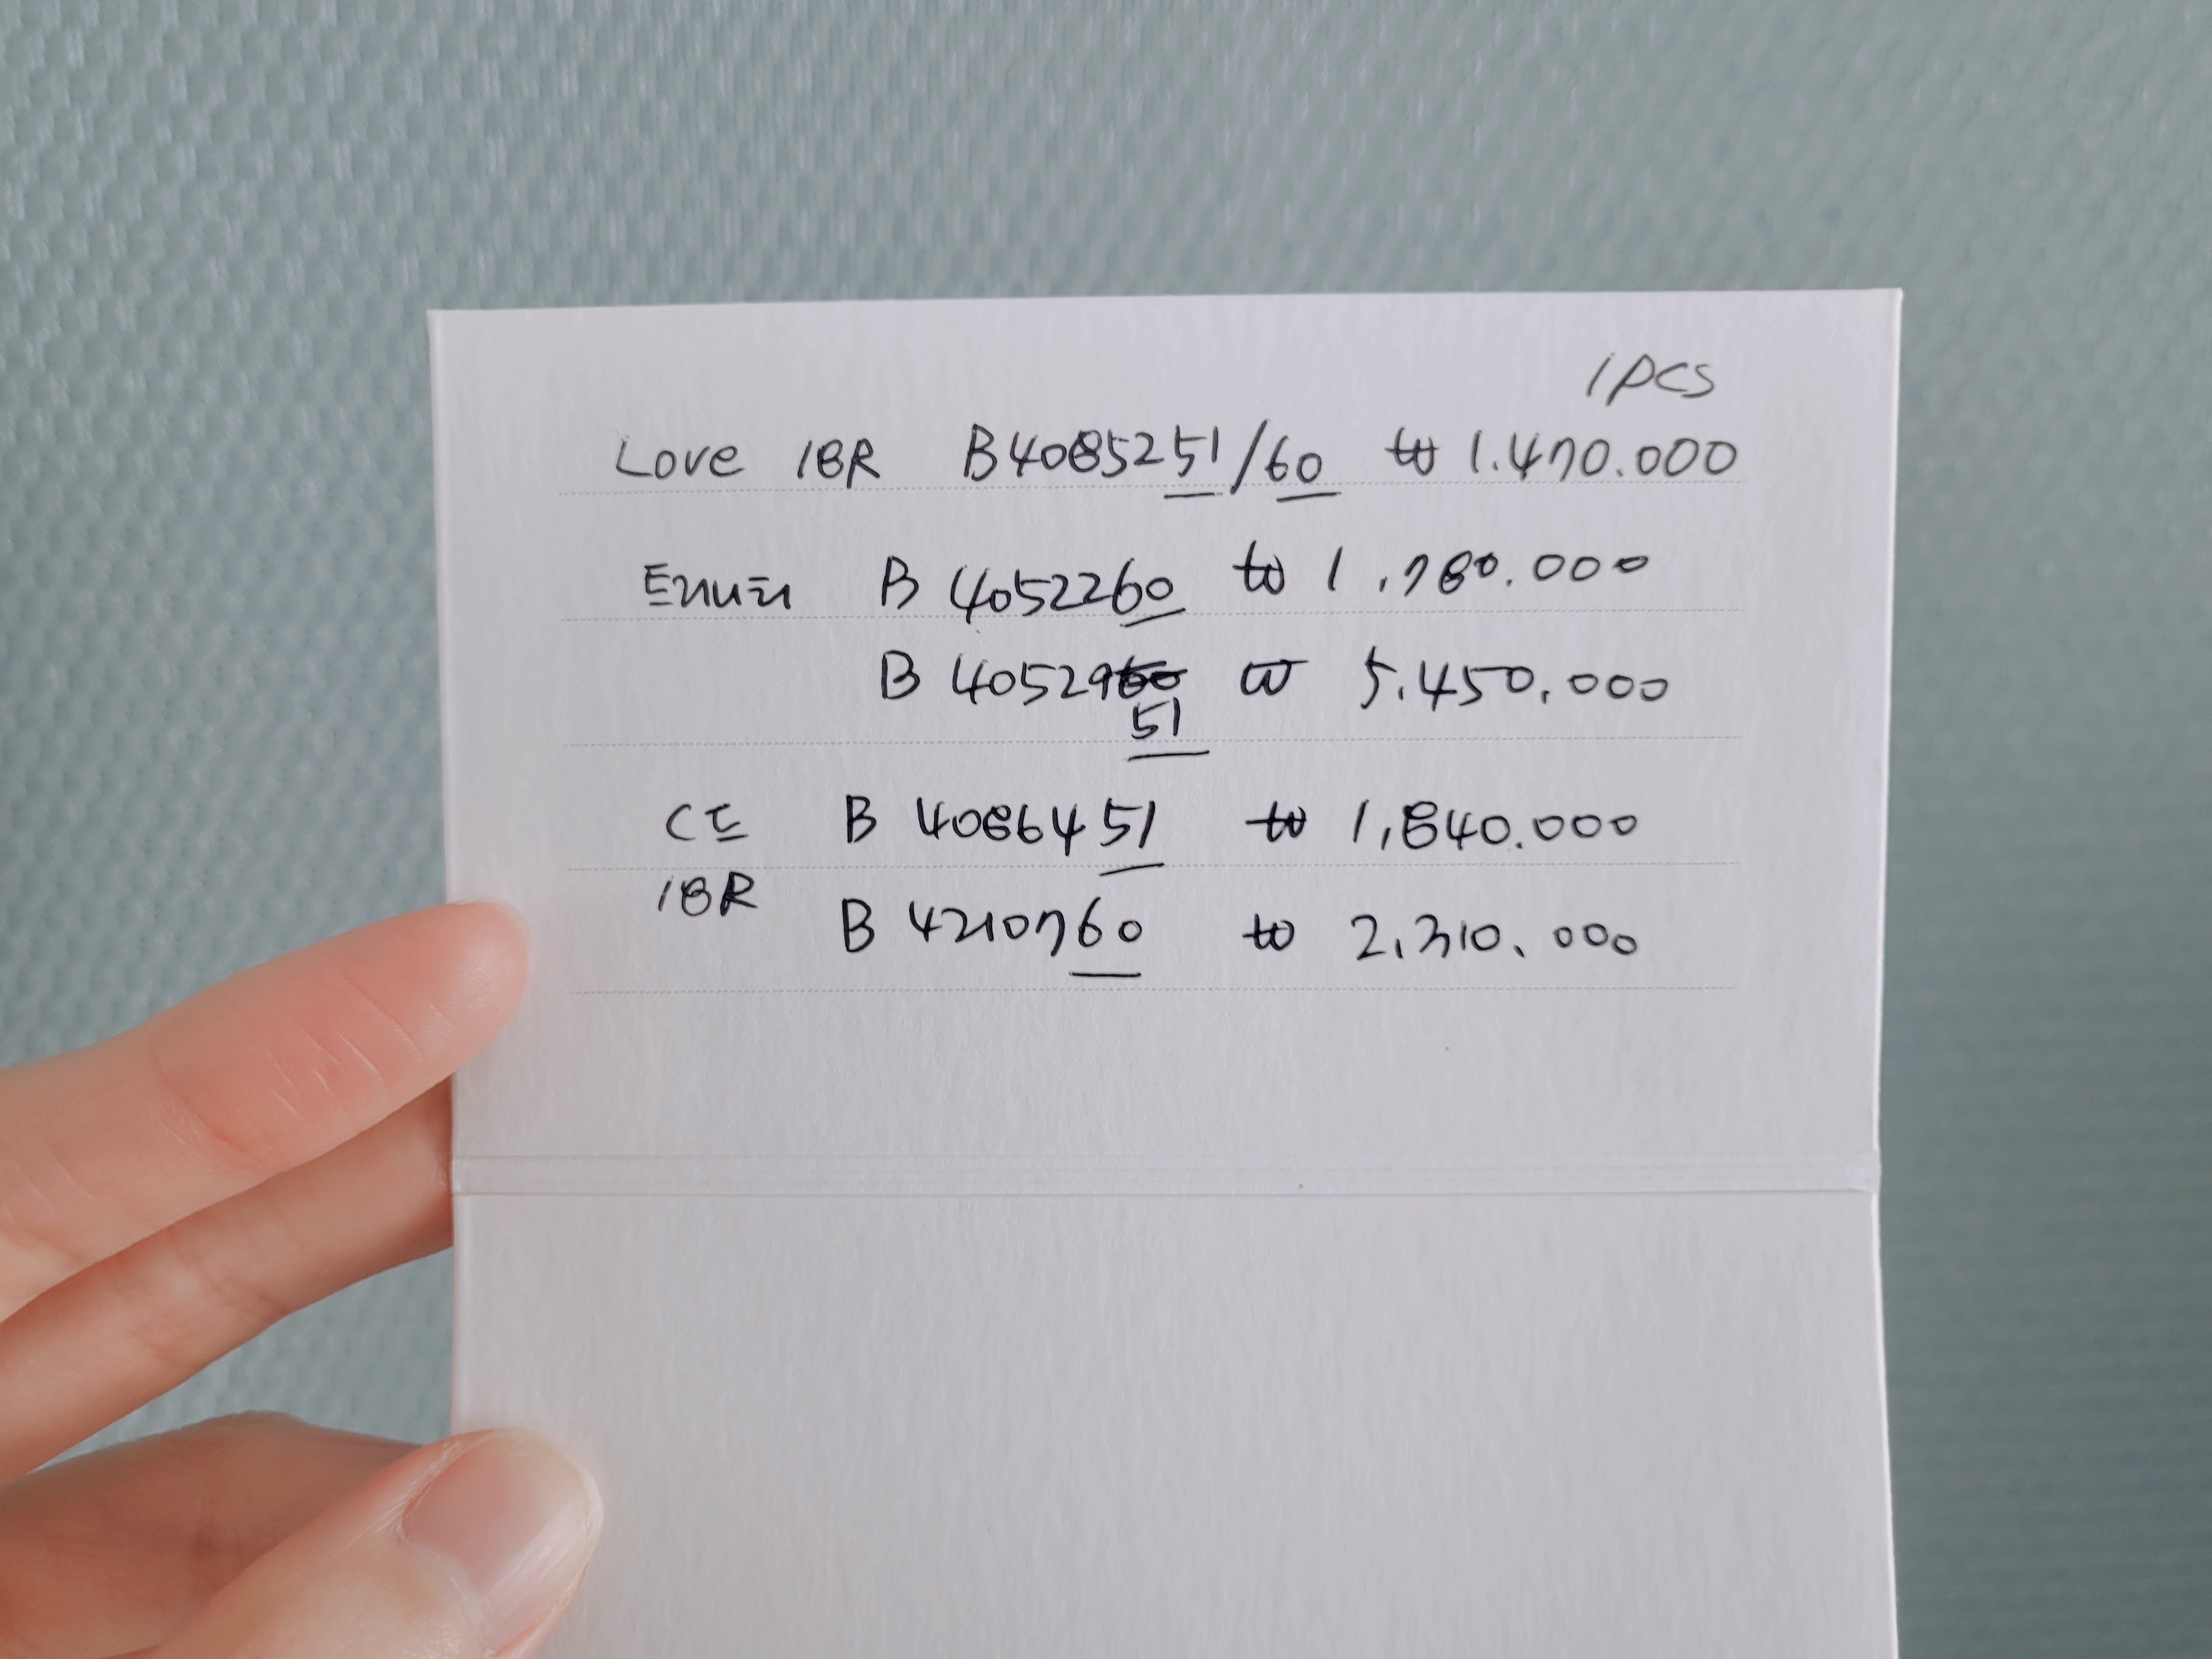 1pcs
Love 18R B4085251/60 ₩ 1.470.000
트리니티 B 4052260 ₩ 1,780.000
B 4052960 ₩ 5.450.000
51
CㄷE B 4086451 ₩ 1,840.000
18R
B 4210760 ₩ 2,310.000